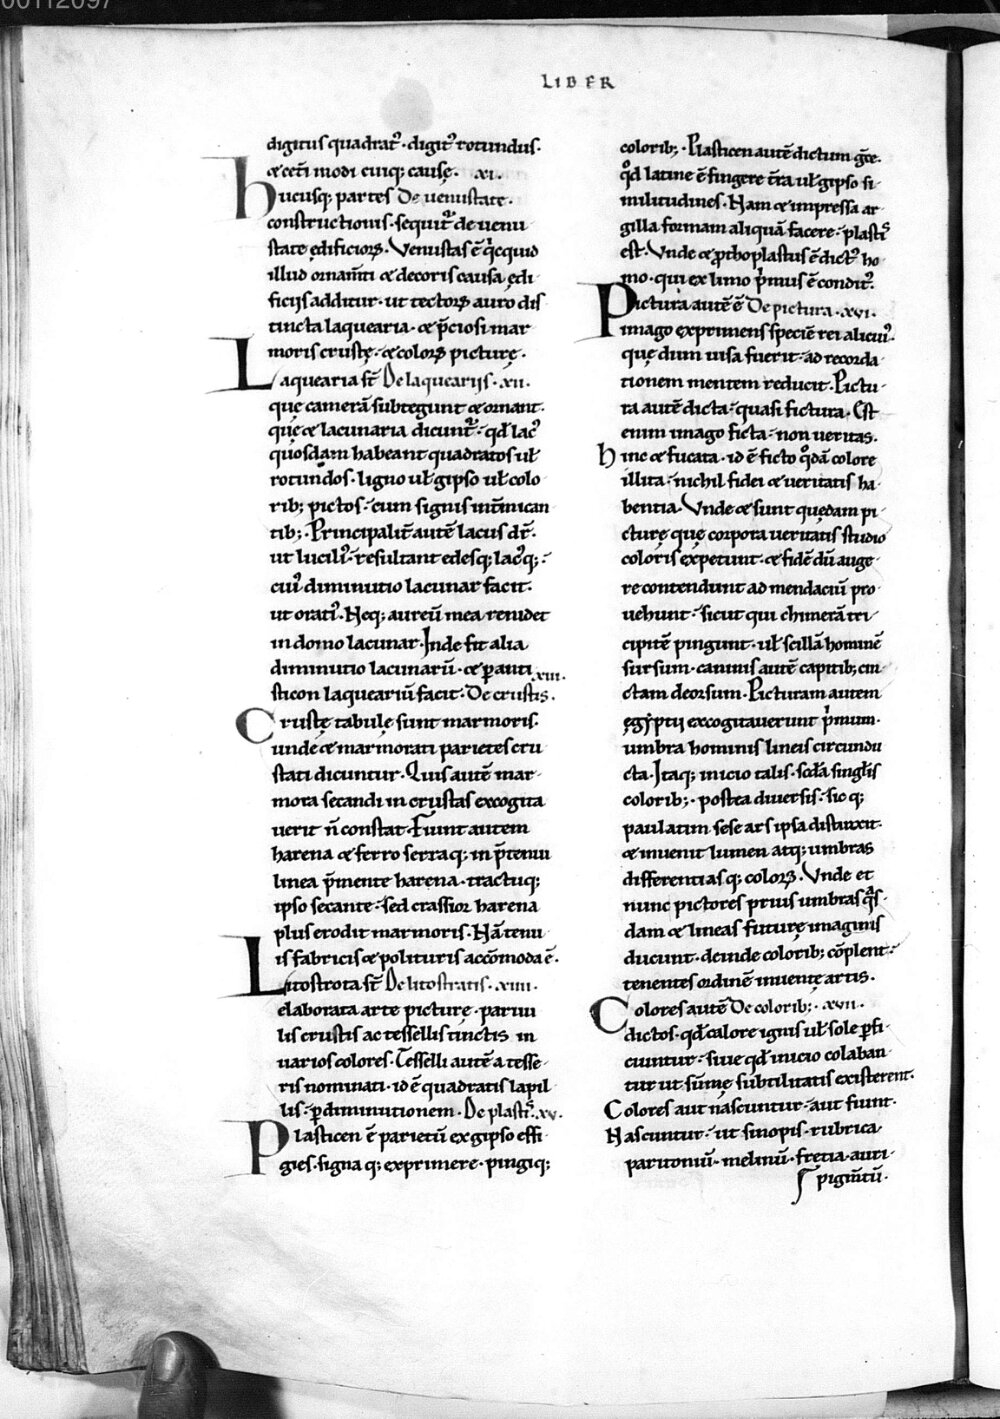 00112097
LIBER
digitus quadratꝰ· digitꝰ rotundus·
& cet̃i modi cuiq; cause̜· .xi.
Hucusq; partes De uenustate·
constructionis· sequit̃ de uenu
state e̜dificioꝝ· Venustas ẽ q̇cquid
illud ornam̃ti & decoris causa e̜di·
ficijs additur· ut tectoꝝ auro dis
tincta laquearia· & p̃ciosi mar
moris cruste̜· & coloꝝ picture̜·
Laquearia s̃t De laquearijs· .xii.
que̜ camerã subtegunt & ornant·
que̜ & lacunaria dicunt̃· qđ lacꝰ
quosdam habeant quadratos uł
rotundos· ligno uł gipso uł colo
rib; pictos· cum signis int̃mican
tib;· Principalit̃ autẽ lacus dr̃·
ut lucilꝰ· resultant edesq; lacꝰq;·
cuiꝰ diminutio lacunar facit·
ut oratiꝰ· Neq; aureũ mea renidet
in domo lacunar· Inde fit alia
diminutio lacunarũ· & ꝑ anti .xiii.
sticon laqueariũ facit· De crustis·
Cruste̜ tabule̜ sunt marmoris·
unde & marmorati parietes cru
stati dicuntur· Quis autẽ mar·
mora secandi in crustas excogita
uerit ñ constat· Fiunt autem
harena & ferro serraq; in p̃tenui
linea p̃mente harena· tractuq;
ipso secante· sed crassior harena
plus erodit marmoris· Nã tenu
is fabricis & polituris accõmoda ẽ·
Litostrota s̃t De litostratis· .xiiii.
elaborata arte picture̜· paruu
lis crustis ac tessellis tinctis in
uarios colores· Tesselli autẽ a tesse·
ris nominati· id ẽ quadratis lapil
lis· ꝑ diminutionem· De plastiꝰ· .xv.
Plasticen ẽ parietũ ex gipso effi·
gies· signa q; exprimere· pingiq;
colorib;· Plasticen autẽ dictum gr̃e·
qđ latine ẽ fingere t̃ra uł gipso si·
militudines· Nam & impressa ar·
gilla formam aliquã facere· plastiꝰ
est· Vnde & ꝓthoplastus ẽ dictꝰ ho·
mo· qui ex limo p̍mus ẽ conditꝰ·
Pictura autẽ ẽ De pictura· .xvi.
imago exprimens speciẽ rei alicuiꝰ·
que̜ dum uisa fuerit· ad recorda·
tionem mentem reducit· Pictu·
ra autẽ dicta· quasi fictura· Est
enim imago ficta· non ueritas·
hinc & fucata· id ẽ ficto q̊dã colore
illita· nichil fidei & ueritatis ha·
bentia· Vnde & sunt que̜dam pi·
cture̜ que̜ corpora ueritatis studio
coloris expetunt· & fidẽ dũ auge·
re contendunt ad mendaciũ pro·
uehunt· sicut qui chimerã tri·
cipitẽ pingunt· uł scillã hominẽ
sursum· caninis autẽ capitib; cin·
ctam deorsum· Picturam autem
e̜gẏptij excogitauerunt p̍mum·
umbra hominis lineis circundu
cta· Itaq; inicio talis· scđa singłis
colorib;· postea diuersis· sic q;
paulatim sese ars ipsa distinxit·
& inuenit lumen atq; umbras
differentias q; coloꝝ· Vnde et
nunc pictores prius umbras q̃s·
dam & lineas future̜ imaginis
ducunt· deinde colorib; cõplent·
tenentes ordinẽ inuente̜ artis·
Colores autẽ De colorib;· .xvii.
dictos· qđ calore ignis uł sole ꝑfi·
ciuntur· siue qđ inicio colaban·
tur ut sũme̜ subtilitatis existerent·
Colores aut nascuntur· aut fiunt·
Nascuntur· ut sinopis· rubrica·
paritoniũ· melinũ· fretia· auri·
pigm̃tũ·